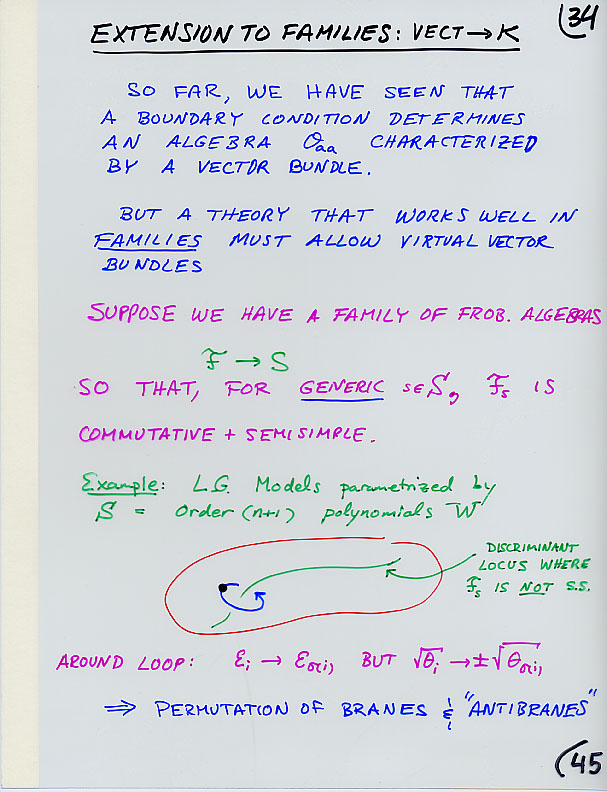 (34
EXTENSION TO FAMILIES: VECT → K
SO FAR, WE HAVE SEEN THAT
A BOUNDARY CONDITION DETERMINES
AN ALGEBRA O_aa CHARACTERIZED
BY A VECTOR BUNDLE.
BUT A THEORY THAT WORKS WELL IN
FAMILIES MUST ALLOW VIRTUAL VECTOR
BUNDLES
SUPPOSE WE HAVE A FAMILY OF FROB. ALGEBRAS
F → S
SO THAT, FOR GENERIC s∈S, F_s IS
COMMUTATIVE + SEMISIMPLE.
Example: L.G. Models parametrized by
S = Order (n+1) polynomials W
DISCRIMINANT
LOCUS WHERE
F_s IS NOT S.S.
AROUND LOOP: ε_i → ε_σ(i), BUT √θ_i → ±√θ_σ(i),
⇒ PERMUTATION OF BRANES & "ANTIBRANES"
(45